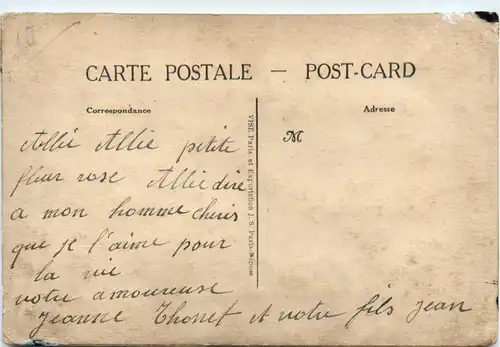 CARTE POSTALE — POST-CARD
Correspondance
Adresse
M
VISÉ Paris et Exportation J. S. Paris-Dépose
Allié Allié petite
fleur rose Allié dire
a mon homme cheris
que je l'aime pour
la vie
votre amoureuse
Jeanne Thonet et votre fils Jean